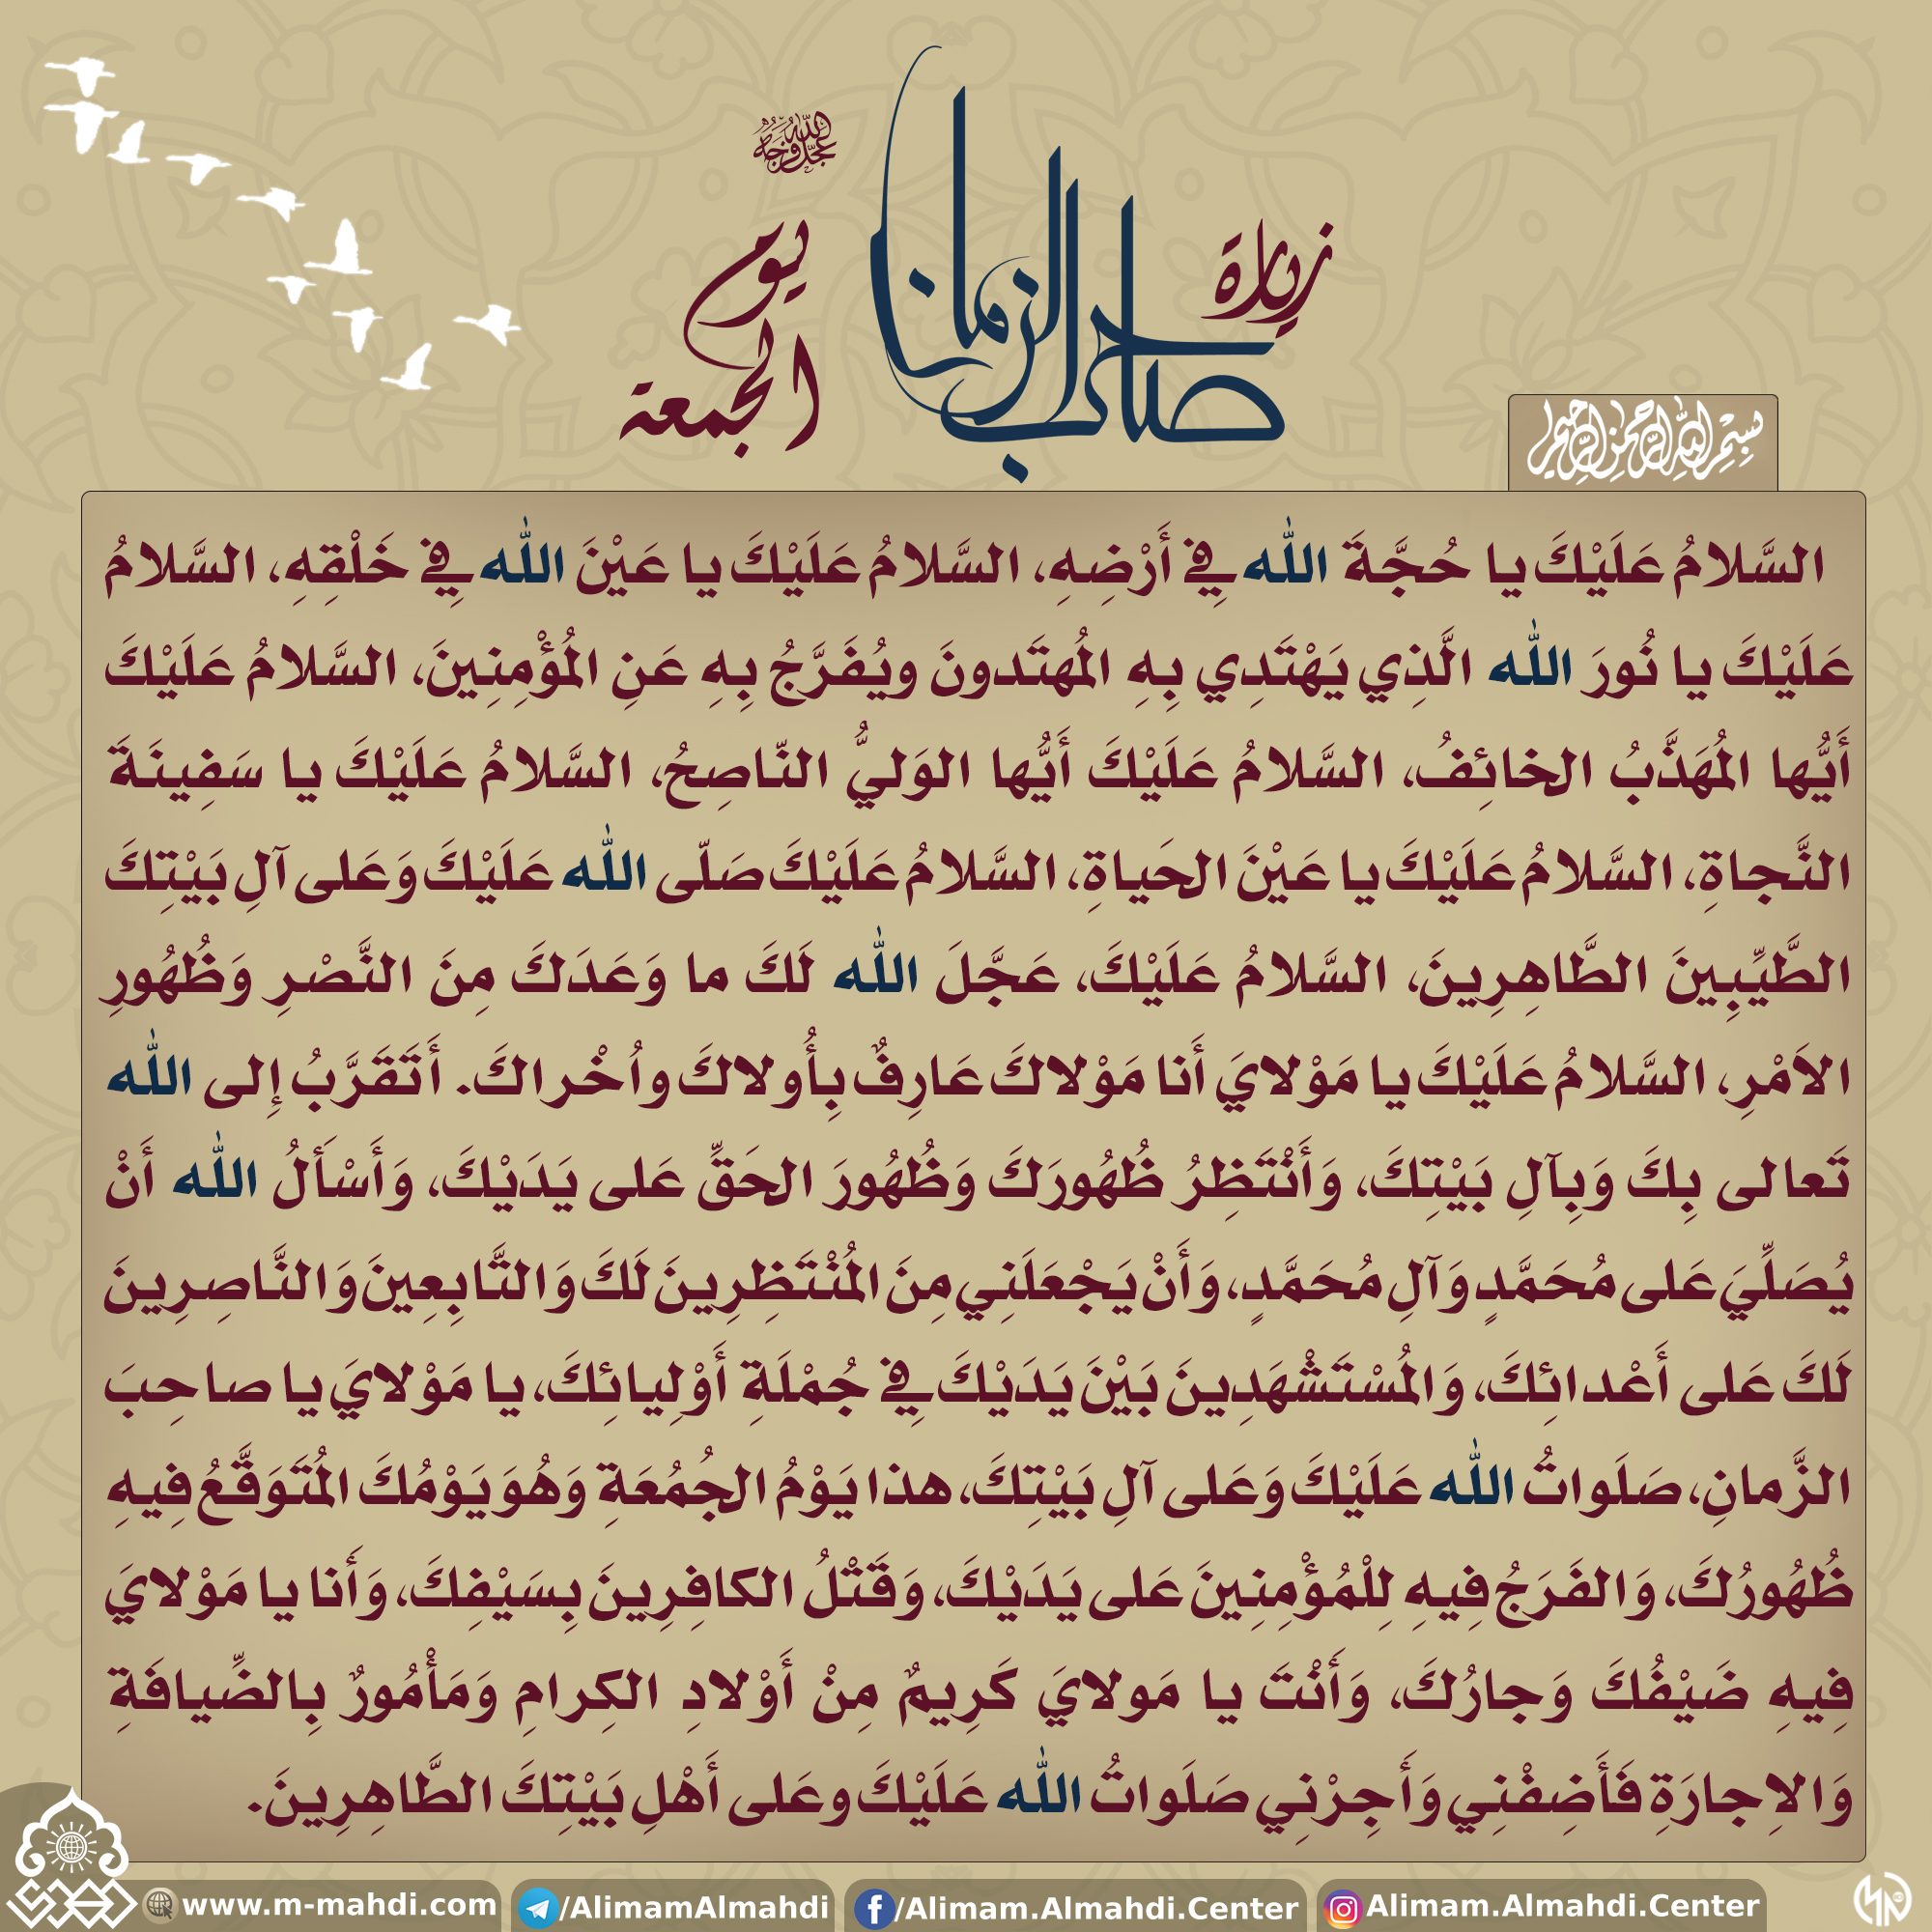 زيارة
صاحب الزمان
عجل الله فرجه
يوم
الجمعة
بسم الله الرحمن الرحيم
السَّلامُ عَلَيْكَ يا حُجَّةَ الله فِي أَرْضِهِ، السَّلامُ عَلَيْكَ يا عَيْنَ الله فِي خَلْقِهِ، السَّلامُ
عَلَيْكَ يا نُورَ الله الَّذِي يَهْتَدِي بِهِ المُهتَدونَ ويُفَرَّجُ بِهِ عَنِ المُؤْمِنِينَ، السَّلامُ عَلَيْكَ
أَيُّها المُهَذَّبُ الخائِفُ، السَّلامُ عَلَيْكَ أَيُّها الوَليُّ النّاصِحُ، السَّلامُ عَلَيْكَ يا سَفِينَةَ
النَّجاةِ، السَّلامُ عَلَيْكَ يا عَيْنَ الحَياةِ، السَّلامُ عَلَيْكَ صَلّى الله عَلَيْكَ وَعَلى آلِ بَيْتِكَ
الطَّيِّبِينَ الطَّاهِرِينَ، السَّلامُ عَلَيْكَ، عَجَّلَ الله لَكَ ما وَعَدَكَ مِنَ النَّصْرِ وَظُهُورِ
الاَمْرِ، السَّلامُ عَلَيْكَ يا مَوْلايَ أَنا مَوْلاكَ عَارِفٌ بِأُولاكَ واُخْراكَ. أَتَقَرَّبُ إِلى الله
تَعالى بِكَ وَبِآلِ بَيْتِكَ، وَأَنْتَظِرُ ظُهُورَكَ وَظُهُورَ الحَقِّ عَلى يَدَيْكَ، وَأَسْأَلُ الله أَنْ
يُصَلِّيَ عَلى مُحَمَّدٍ وَآلِ مُحَمَّدٍ، وَأَنْ يَجْعَلَنِي مِنَ المُنْتَظِرِينَ لَكَ وَالتَّابِعِينَ وَالنَّاصِرِينَ
لَكَ عَلى أَعْدائِكَ، وَالمُسْتَشْهَدِينَ بَيْنَ يَدَيْكَ فِي جُمْلَةِ أَوْلِيائِكَ، يا مَوْلايَ يا صاحِبَ
الزَّمانِ، صَلَواتُ الله عَلَيْكَ وَعَلى آلِ بَيْتِكَ، هذا يَوْمُ الجُمُعَةِ وَهُوَ يَوْمُكَ المُتَوَقَّعُ فِيهِ
ظُهُورُكَ، وَالفَرَجُ فِيهِ لِلْمُؤْمِنِينَ عَلى يَدَيْكَ، وَقَتْلُ الكافِرِينَ بِسَيْفِكَ، وَأَنا يا مَوْلايَ
فِيهِ ضَيْفُكَ وَجارُكَ، وَأَنْتَ يا مَولايَ كَرِيمٌ مِنْ أَوْلادِ الكِرامِ وَمَأْمُورٌ بِالضِّيافَةِ
وَالاِجارَةِ فَأَضِفْنِي وَأَجِرْنِي صَلَواتُ الله عَلَيْكَ وعَلى أَهْلِ بَيْتِكَ الطَّاهِرِينَ.
www.m-mahdi.com
/AlimamAlmahdi
/Alimam.Almahdi.Center
Alimam.Almahdi.Center